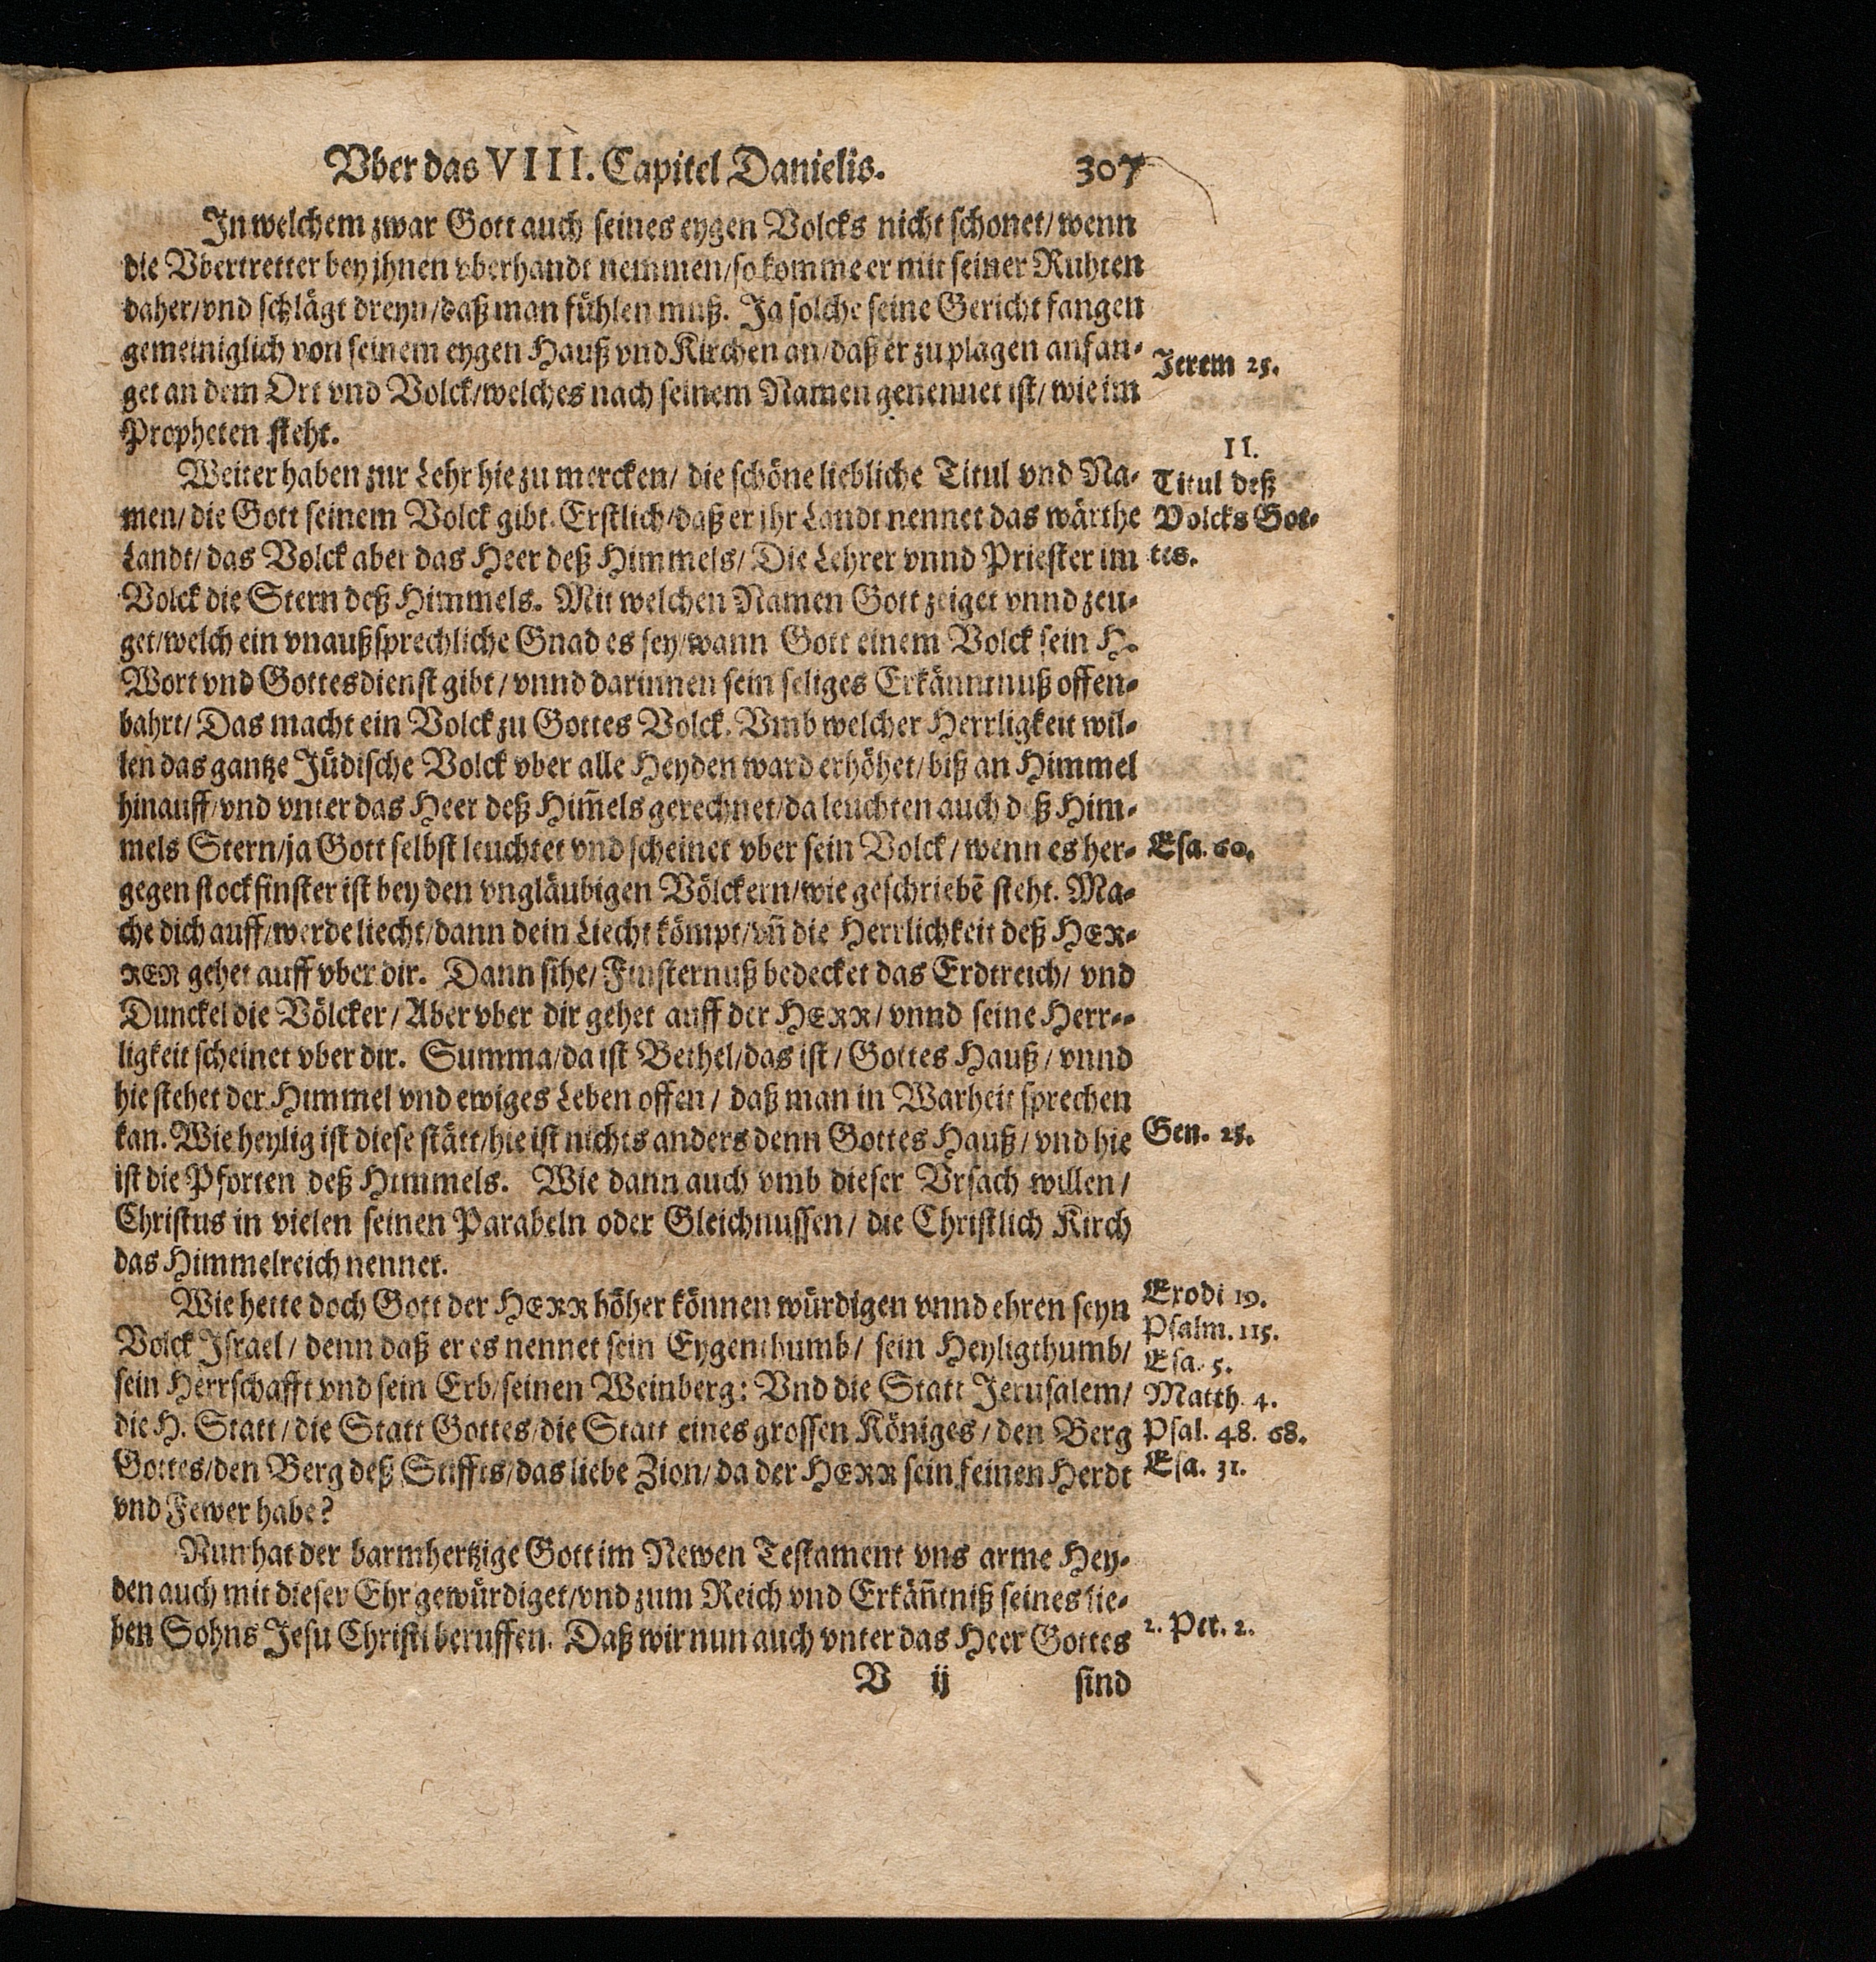 Vber das VIII. Capitel Danielis. 307
In welchem zwar Gott auch seines eygen Volcks nicht schonet/ wenn
die Vbertretter bey jhnen vberhandt nemmen/ so komme er mit seiner Ruhten
daher/ vnd schlägt dreyn/ daß man fühlen muß. Ja solche seine Gericht fangen
gemeiniglich von seinem eygen Hauß vnd Kirchen an/ daß er zu plagen anfan-
Jerem 25.
get an dem Ort vnd Volck/ welches nach seinem Namen genennet ist/ wie im
Propheten steht.
II.
Weiter haben zur Lehr hie zu mercken/ die schöne liebliche Titul vnd Na-
Titul deß
men/ die Gott seinem Volck gibt. Erstlich/ daß er jhr Landt nennet das wärthe
Volcks Got-
Landt/ das Volck aber das Heer deß Himmels/ Die Lehrer vnnd Priester im
tes.
Volck die Stern deß Himmels. Mit welchen Namen Gott zeiget vnnd zeu-
get/ welch ein vnaußsprechliche Gnad es sey/ wann Gott einem Volck sein H.
Wort vnd Gottesdienst gibt/ vnnd darinnen sein seliges Erkänntnuß offen-
bahrt/ Das macht ein Volck zu Gottes Volck. Vmb welcher Herrligkeit wil-
len das gantze Jüdische Volck vber alle Heyden ward erhöhet/ biß an Himmel
hinauff/ vnd vnter das Heer deß Him̃els gerechnet/ da leuchten auch deß Him-
mels Stern/ ja Gott selbst leuchtet vnd scheinet vber sein Volck/ wenn es her-
Esa. 60.
gegen stockfinster ist bey den vngläubigen Völckern/ wie geschriebē steht. Ma-
che dich auff/ werde liecht/ dann dein Liecht kömpt/ vñ die Herrlichkeit deß HER-
REN gehet auff vber dir. Dann sihe/ Finsternuß bedecket das Erdtreich/ vnd
Dunckel die Völcker/ Aber vber dir gehet auff der HERR/ vnnd seine Herr-
ligkeit scheinet vber dir. Summa/ da ist Bethel/ das ist/ Gottes Hauß/ vnnd
hie stehet der Himmel vnd ewiges Leben offen/ daß man in Warheit sprechen
kan. Wie heylig ist diese stätt/ hie ist nichts anders denn Gottes Hauß/ vnd hie
Gen. 28.
ist die Pforten deß Himmels. Wie dann auch vmb dieser Vrsach willen/
Christus in vielen seinen Parabeln oder Gleichnussen/ die Christlich Kirch
das Himmelreich nennet.
Wie hette doch Gott der HERR höher können würdigen vnnd ehren seyn
Exodi 19.
Psalm. 115.
Volck Israel/ denn daß er es nennet sein Eygenthumb/ sein Heyligthumb/
Esa. 5.
sein Herrschafft vnd sein Erb/ seinen Weinberg: Vnd die Statt Jerusalem/
Matth. 4.
die H. Statt/ die Statt Gottes/ die Statt eines grossen Königes/ den Berg
Psal. 48. 68.
Gottes/ den Berg deß Stiffts/ das liebe Zion/ da der HERR sein seinen Herdt
Esa. 31.
vnd Fewer habe?
Nun hat der barmhertzige Gott im Newen Testament vns arme Hey-
den auch mit dieser Ehr gewürdiget/ vnd zum Reich vnd Erkäñtniß seines lie-
ben Sohns Jesu Christi beruffen. Daß wir nun auch vnter das Heer Gottes
2. Pet. 2.
V ij sind